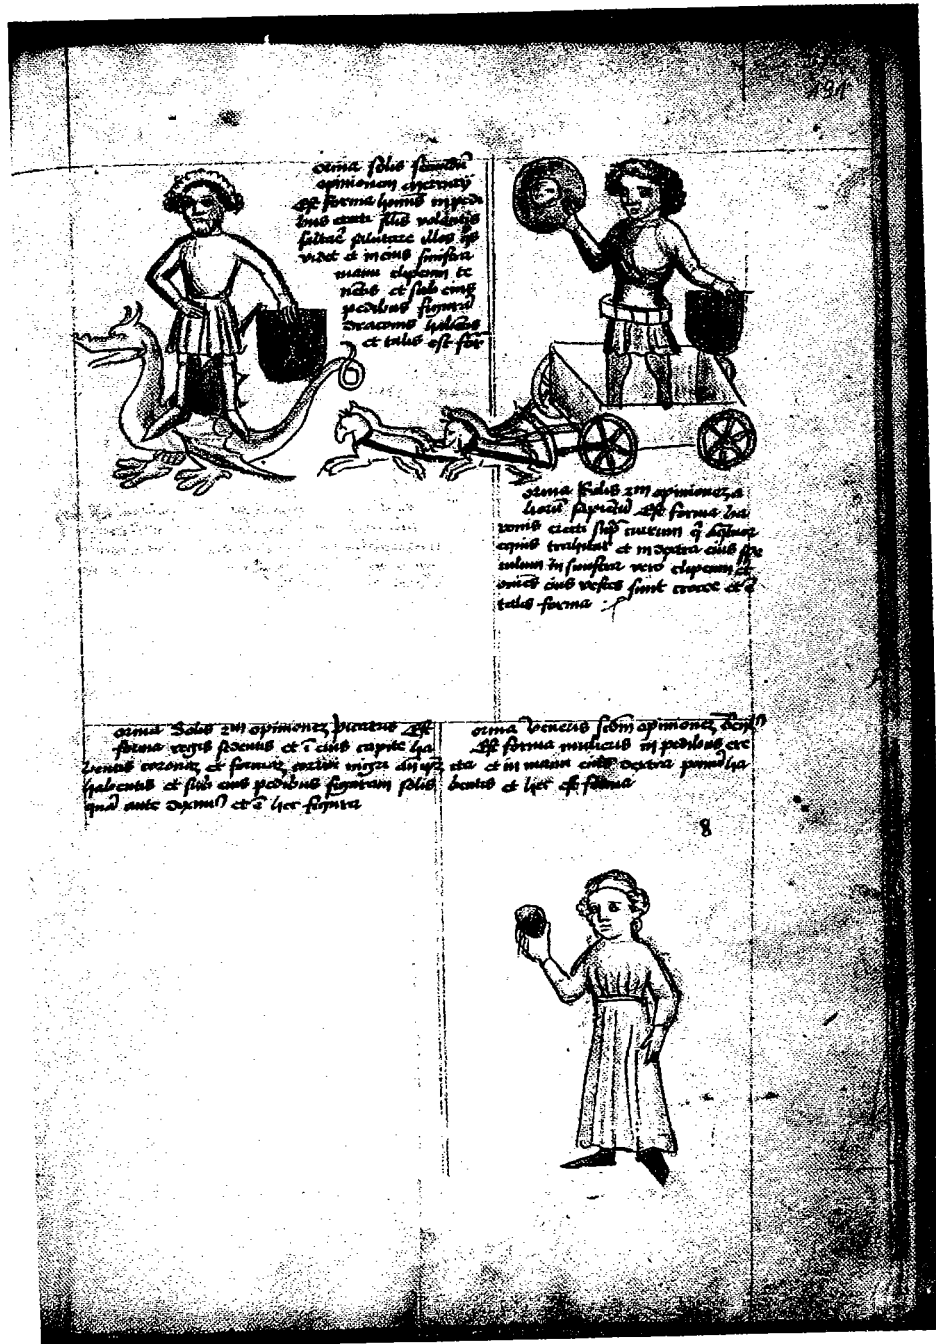 191
orma solis secundum
opinionem mercurij
Est forma hominis in pedi
bus erecti illis volentis
salutare illos quos
videt et in eius sinistra
manu clipeum te
nentis et sub eius
pedibus figuram
draconis habentis
et talis est
orma Solis opinionem a
liorum sapientum Est forma
erecti super currum quem quatuor
equi trahunt et in dextra eius spe
culum in sinistra vero clipeum et
omnes eius vestes sunt crocee et e
talis forma
orma Solis opinionem picatris Est
forma regis sedentis et in eius capite
bentis coronam et formam corui
habentis et sub eius pedibus figuram solis
quam ante diximus et e hec figura
orma veneris secundum opinionem
Est forma mulieris in pedibus ere
cta et in manu eius dextra pomum ha
bentis et hec est forma
8